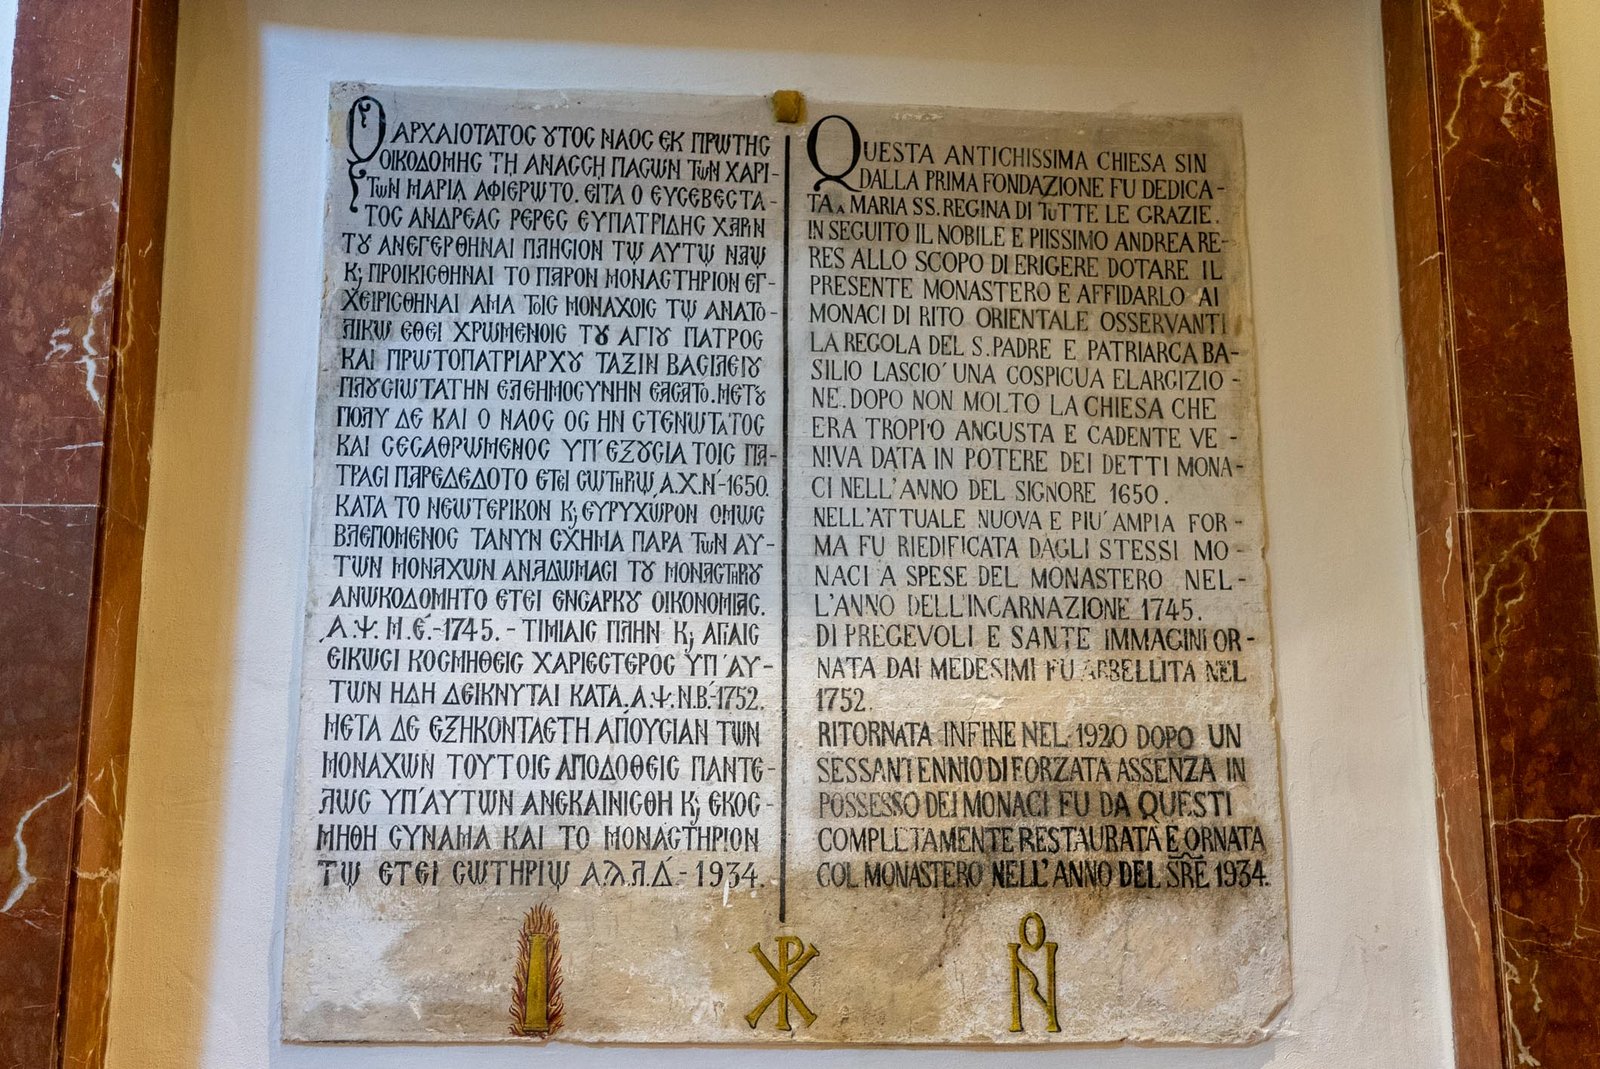 Ο ΑΡΧΑΙΟΤΑΤΟΣ ȣΤΟΣ ΝΑΟΣ ΕΚ ΠΡΩΤΗΣ
ΟΙΚΟΔΟΜΗΣ ΤΗ ΑΝΑΣΣΗ ΠΑΣΩΝ ΤΩΝ ΧΑΡΙ-
ΤΩΝ ΜΑΡΙΑ ΑΦΙΕΡΩΤΟ. ΕΙΤΑ Ο ΕΥΣΕΒΕΣΤΑ-
ΤΟΣ ΑΝΔΡΕΑΣ ΡΕΡΕΣ ΕΥΠΑΤΡΙΔΗΣ ΧΑΡΙΝ
Τȣ ΑΝΕΓΕΡΘΗΝΑΙ ΠΛΗΣΙΟΝ ΤΩ ΑΥΤΩ ΝΑΩ
Κ; ΠΡΟΙΚΙΣΘΗΝΑΙ ΤΟ ΠΑΡΟΝ ΜΟΝΑΣΤΗΡΙΟΝ ΕΓ-
ΧΕΙΡΙΣΘΗΝΑΙ ΑΜΑ ΤΟΙΣ ΜΟΝΑΧΟΙΣ ΤΩ ΑΝΑΤΟ-
ΛΙΚΩ ΕΘΕΙ ΧΡΩΜΕΝΟΙΣ ΤȣΑΓΙȣ ΠΑΤΡΟΣ
ΚΑΙ ΠΡΩΤΟΠΑΤΡΙΑΡΧȣ ΤΑΞΙΝ ΒΑΣΙΛΕΙȣ
ΠΛΥΣΙΩΤΑΤΗΝ ΕΛΕΗΜΟΣΥΝΗΝ ΕΑΣΑΤΟ. ΜΕΤȣ
ΠΟΛΥ ΔΕ ΚΑΙ Ο ΝΑΟΣ ΟΣ ΗΝ ΣΤΕΝΩΤΑΤΟΣ
ΚΑΙ ΣΕΣΑΘΡΩΜΕΝΟΣ ΥΠ' ΕΞȣΣΙΑ ΤΟΙΣ ΠΑ-
ΤΡΑΣΙ ΠΑΡΕΔΕΔΟΤΟ ΕΤΕΙ ΣΩΤΗΡΙΩ ͵Α.Χ.Ν΄-1650.
ΚΑΤΑ ΤΟ ΝΕΩΤΕΡΙΚΟΝ Κ; ΕΥΡΥΧΩΡΟΝ ΟΜΩΣ
ΒΛΕΠΟΜΕΝΟΣ ΤΑΝΥΝ ΣΧΗΜΑ ΠΑΡΑ ΤΩΝ ΑΥ-
ΤΩΝ ΜΟΝΑΧΩΝ ΑΝΑΛΩΜΑΣΙ ΤȣΜΟΝΑΣΤΗΡΙȣ
ΑΝΩΚΟΔΟΜΗΤΟ ΕΤΕΙ ΕΝΣΑΡΚȣ ΟΙΚΟΝΟΜΙΑΣ.
͵Α.Ψ.Μ.Ε΄.-1745. - ΤΙΜΙΑΙΣ ΠΛΗΝ Κ; ΑΓΙΑΙΣ
ΕΙΚΩΣΙ ΚΟΣΜΗΘΕΙΣ ΧΑΡΙΕΣΤΕΡΟΣ ΥΠ' ΑΥ-
ΤΩΝ ΗΔΗ ΔΕΙΚΝΥΤΑΙ ΚΑΤΑ ͵Α.Ψ.Ν.Β΄.-1752.
ΜΕΤΑ ΔΕ ΕΞΗΚΟΝΤΑΕΤΗ ΑΠΟΥΣΙΑΝ ΤΩΝ
ΜΟΝΑΧΩΝ ΤΟΥΤΟΙΣ ΑΠΟΔΟΘΕΙΣ ΠΑΝΤΕ-
ΛΩΣ ΥΠ' ΑΥΤΩΝ ΑΝΕΚΑΙΝΙΣΘΗ Κ; ΕΚΟΣ-
ΜΗΘΗ ΣΥΝΑΜΑ ΚΑΙ ΤΟ ΜΟΝΑΣΤΗΡΙΟΝ
ΤΩ ΕΤΕΙ ΣΩΤΗΡΙΩ Α.Ϡ.Λ.Δ΄.- 1934.
QUESTA ANTICHISSIMA CHIESA SIN
DALLA PRIMA FONDAZIONE FU DEDICA-
TA A MARIA SS. REGINA DI TUTTE LE GRAZIE.
IN SEGUITO IL NOBILE E PIISSIMO ANDREA RE-
RES ALLO SCOPO DI ERIGERE DOTARE IL
PRESENTE MONASTERO E AFFIDARLO AI
MONACI DI RITO ORIENTALE OSSERVANTI
LA REGOLA DEL S. PADRE E PATRIARCA BA-
SILIO LASCIO' UNA COSPICUA ELARGIZIO-
NE. DOPO NON MOLTO LA CHIESA CHE
ERA TROPPO ANGUSTA E CADENTE VE-
NIVA DATA IN POTERE DEI DETTI MONA-
CI NELL'ANNO DEL SIGNORE 1650.
NELL'ATTUALE NUOVA E PIU' AMPIA FOR-
MA FU RIEDIFICATA DAGLI STESSI MO-
NACI A SPESE DEL MONASTERO NEL-
L'ANNO DELL'INCARNAZIONE 1745.
DI PREGEVOLI E SANTE IMMAGINI OR-
NATA DAI MEDESIMI FU ABBELLITA NEL
1752.
RITORNATA INFINE NEL 1920 DOPO UN
SESSANTENNIO DI FORZATA ASSENZA IN
POSSESSO DEI MONACI FU DA QUESTI
COMPLETAMENTE RESTAURATA E ORNATA
COL MONASTERO NELL'ANNO DEL SRE 1934.